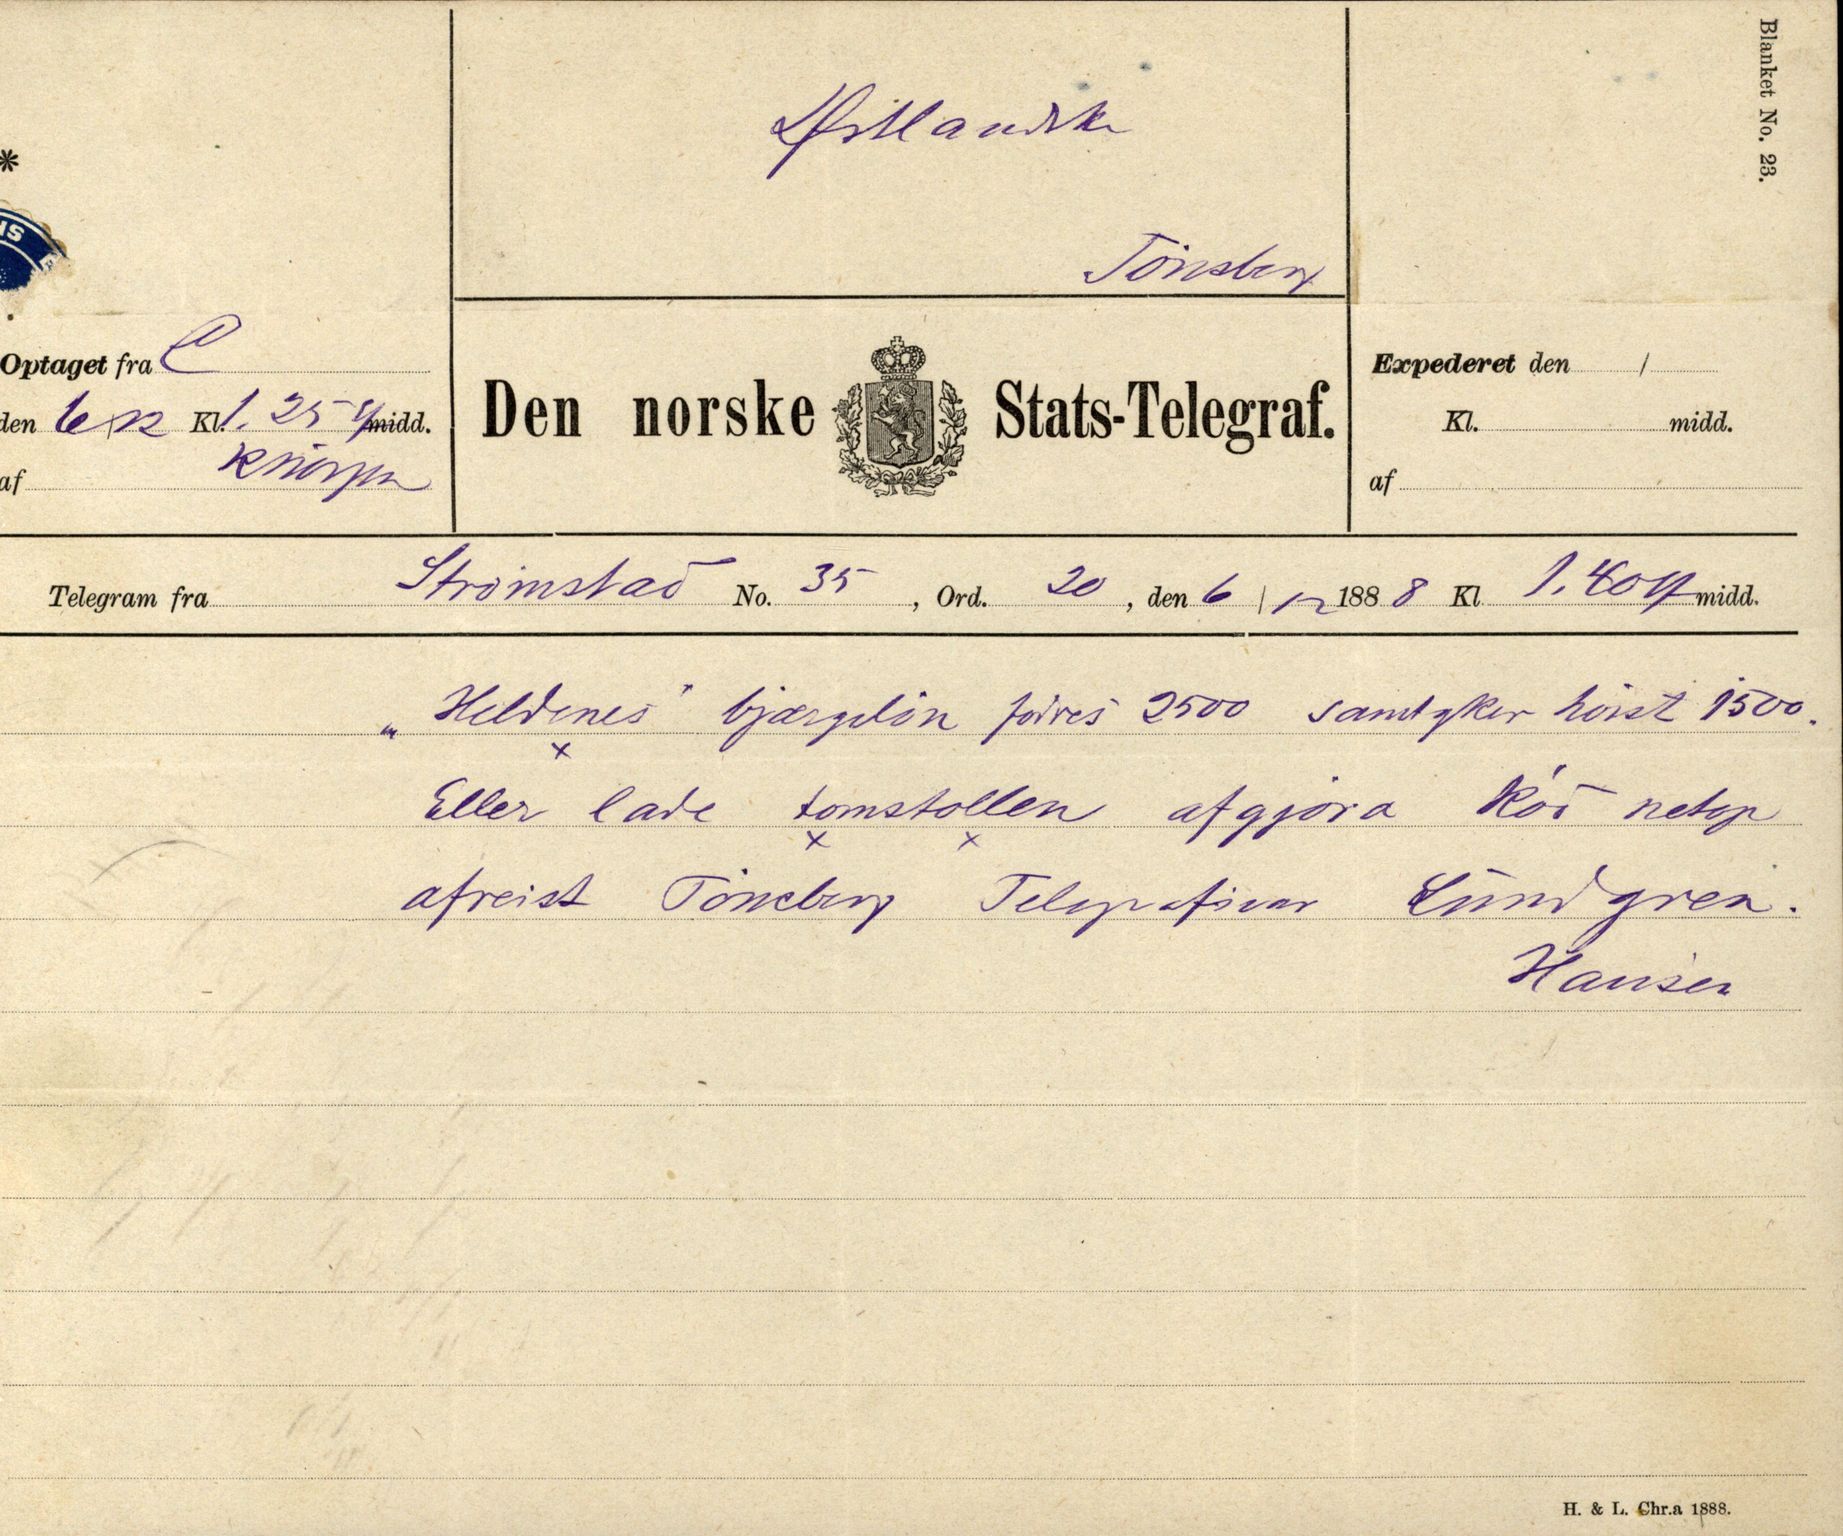 Blanket No. 23.
Østlandske
Tönsberg
Optaget fra C
den 6/12 Kl. 1.25 midd.
af
Den norske Stats-Telegraf.
Expederet den /
Kl. midd.
af
Telegram fra Strömstad No. 35, Ord. 20, den 6/12 1888 Kl 1.40 midd.
„Heldenes" bjærgelön fodres 2500 samtyker höist 1500.
Eller lade tomstollen afgjöra Röd netop
afreist Tönsberg Telegraferar Lundgren.
Hansen
H. & L. Chr.a 1888.